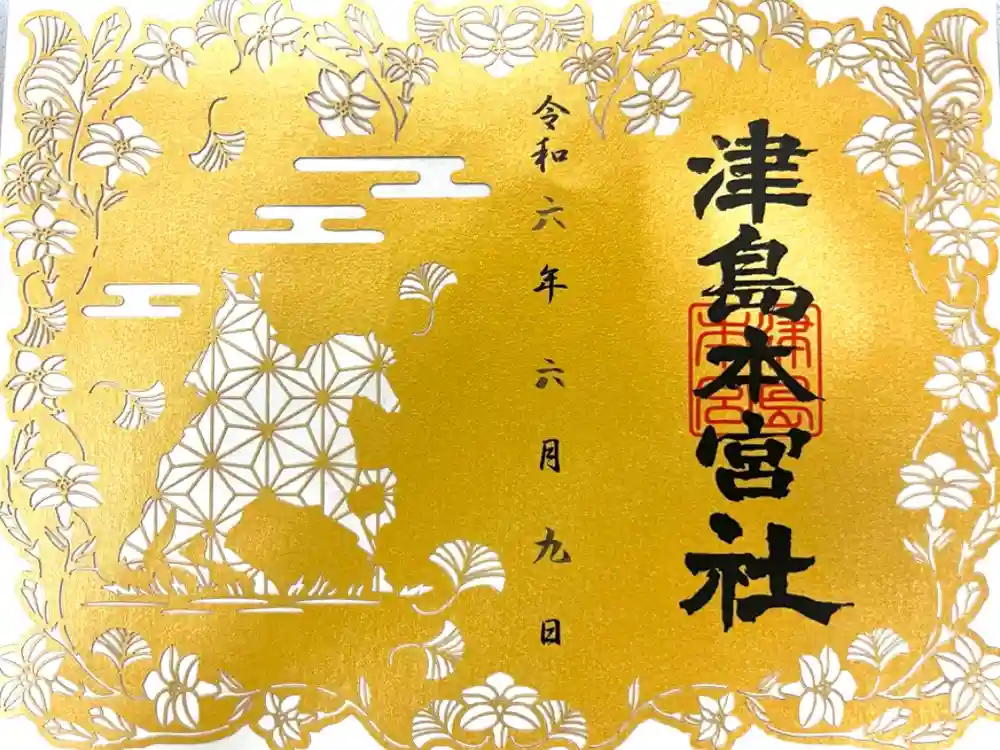 津島本宮社
津島
本宮
令和六年六月九日